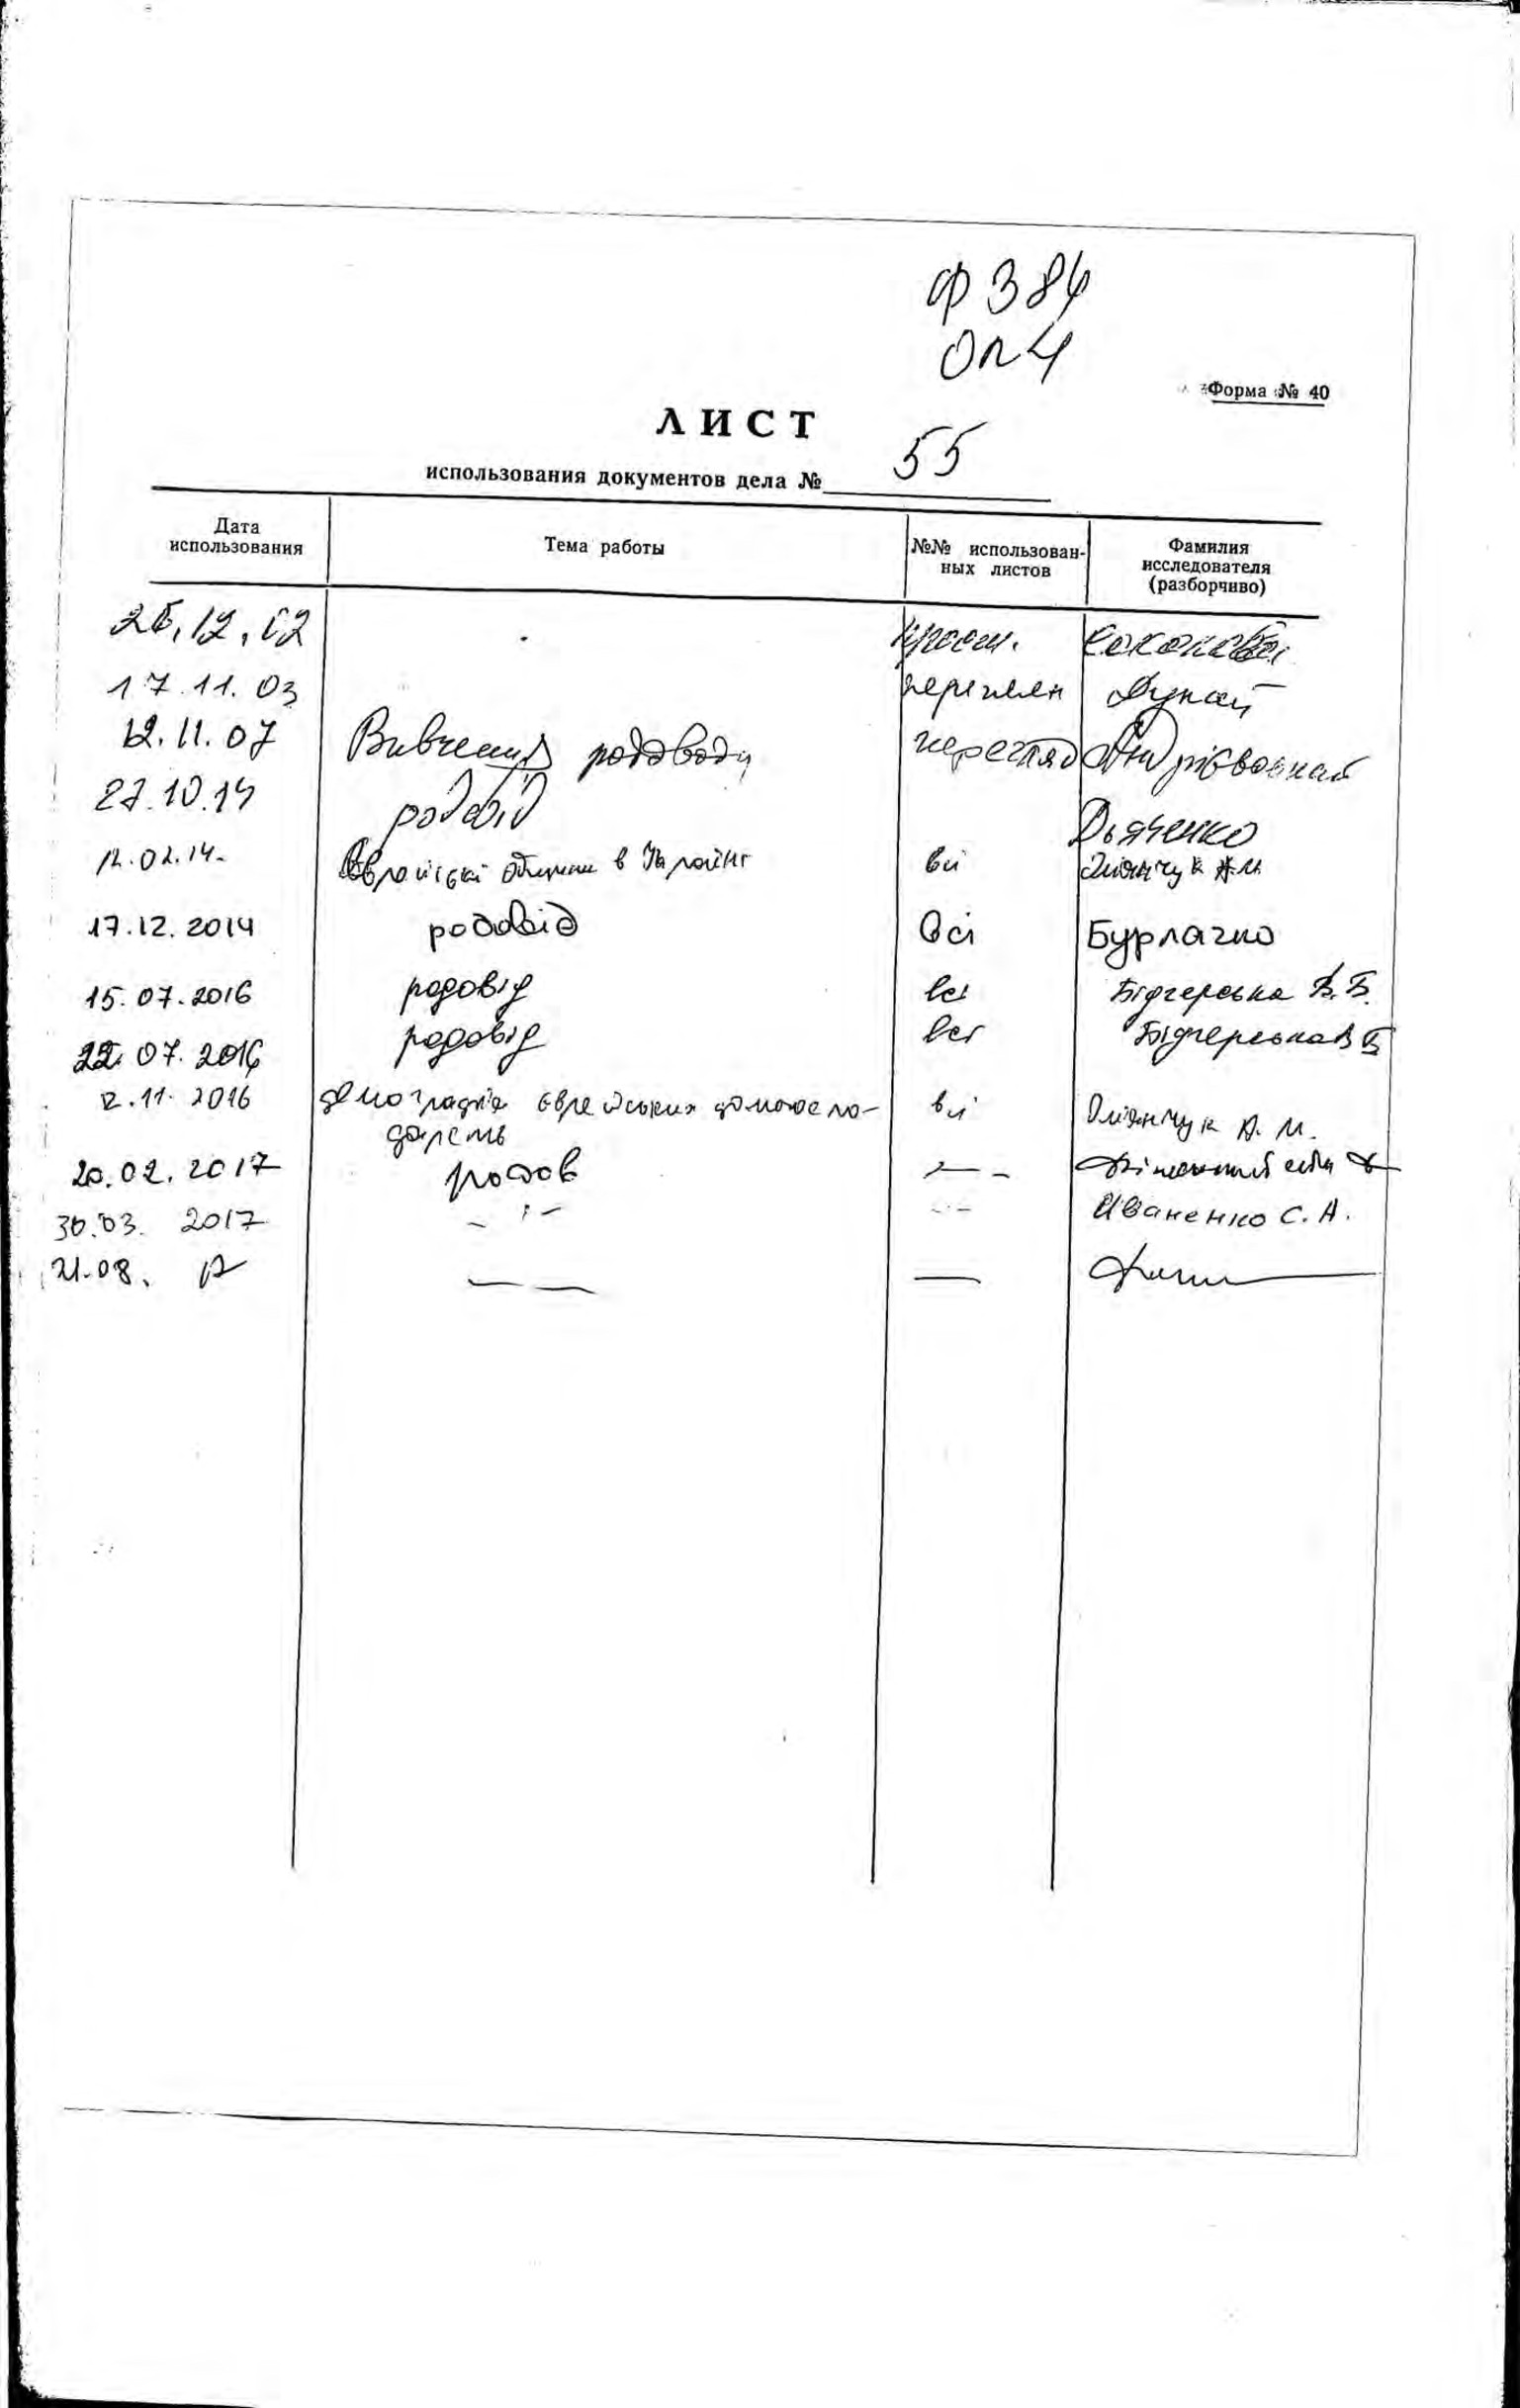 Ф 384
Оп 4
Форма № 40
ЛИСТ
использования документов дела № 55
Дата использования Тема работы №№ использован-ных листов Фамилия исследователя (разборчиво)
26.12.02
17.11.03 перегляд Дунай
12.11.07 Вивчення родоводу перегляд
27.10.14 родовід Дьяченко
12.02.14. Єврейські общини в Україні всі А.М.
17.12.2014 родовід Всі Бурлачко
15.07.2016 родовід всі Бідчерська В.Б.
22.07.2016 родовід всі Бідчерська В Б
2.11.2016 демографія єврейських домоволо-
дарств всі А. М.
20.02.2017 родов
30.03. 2017 Иваненко С. А.
21.08. 17